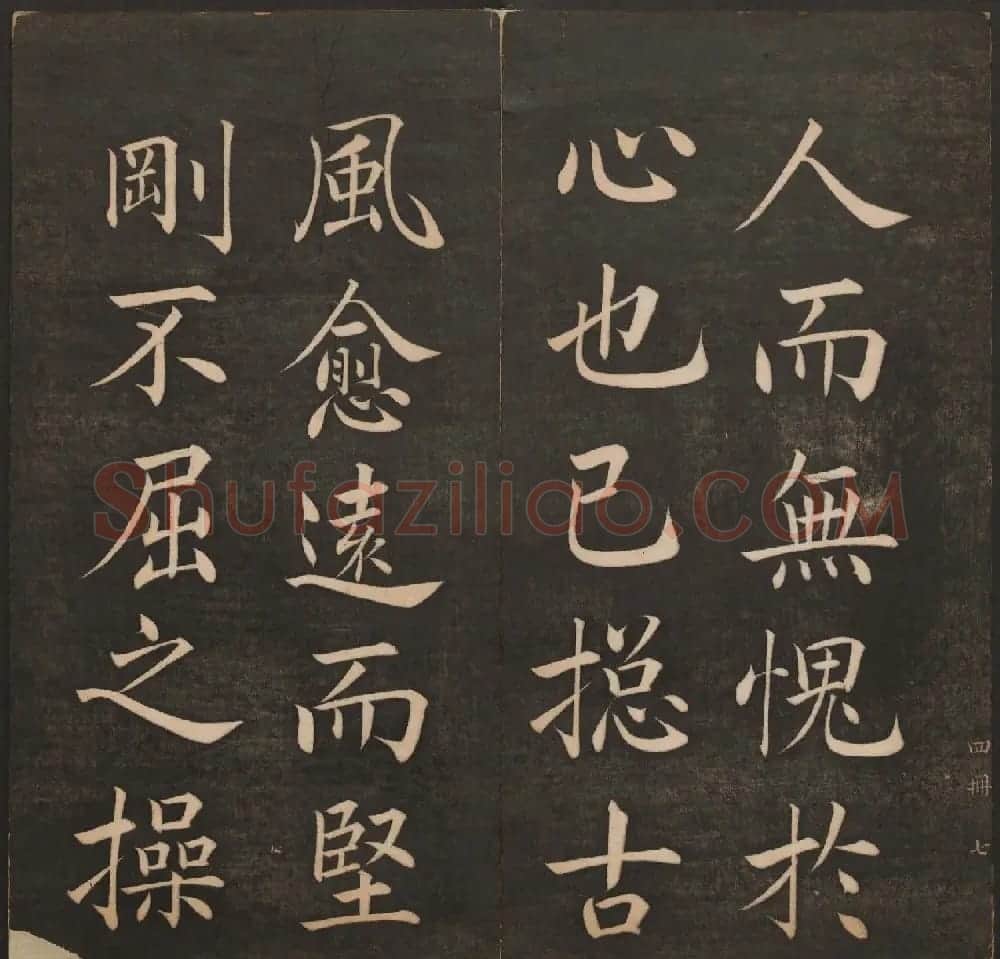 人而無愧於
心也已摠古
風愈遠而堅
剛不屈之操
四冊 七
Shufaziliao.COM